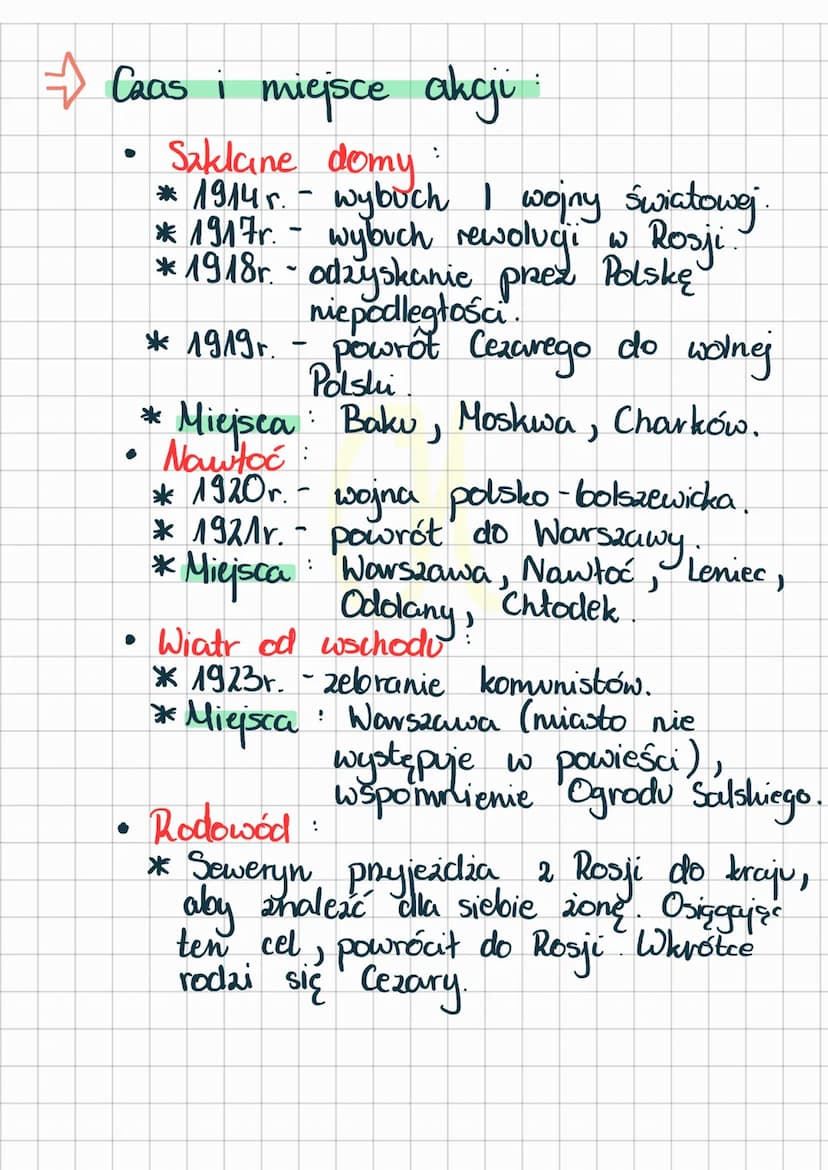 Czas i miejsce akcji:
• Szklane domy:
* 1914r. - wybuch I wojny światowej.
* 1917r. - wybuch rewolucji w Rosji.
* 1918r. - odzyskanie przez Polskę
niepodległości.
* 1919r. - powrót Cezarego do wolnej
Polski.
* Miejsca: Baku, Moskwa, Charków.
• Nawłoć:
* 1920r. - wojna polsko-bolszewicka.
* 1921r. - powrót do Warszawy.
* Miejsca: Warszawa, Nawłoć, Leniec,
Odolany, Chłodek.
• Wiatr od wschodu:
* 1923r. - zebranie komunistów.
* Miejsca: Warszawa (miasto nie
występuje w powieści),
wspomnienie Ogrodu Salskiego.
• Rodowód:
* Seweryn przyjeżdża z Rosji do kraju,
aby znaleźć dla siebie żonę. Osięgając
ten cel, powrócił do Rosji. Wkrótce
rodzi się Cezary.